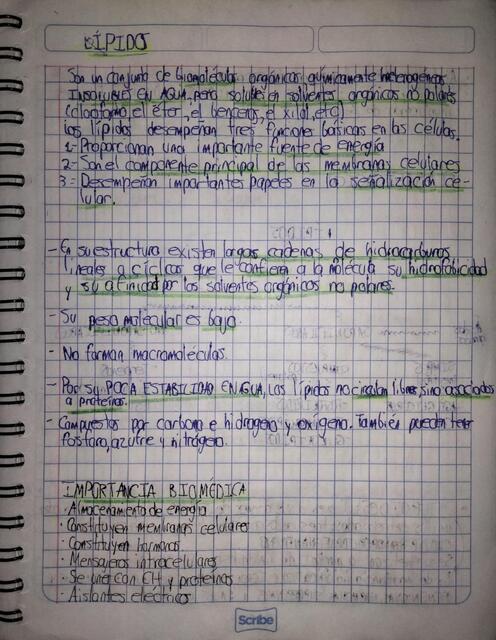 LÍPIDOS
Son un conjunto de biomoléculas orgánicas químicamente heterogéneas
INSOLUBLES EN AGUA, pero solubles en solventes orgánicos no polares
(cloroformo, el éter, el benceno, el xilol, etc)
Los lípidos desempeñan tres funciones básicas en las células.
1- Proporcionan una importante fuente de energía
2- Son el componente principal de las membranas celulares
3- Desempeñan importantes papeles en la señalización ce-
lular.
- En su estructura existen largas cadenas de hidrocarburos
lineales o cíclicos que le confieren a la molécula su hidrofobicidad
y su afinidad por los solventes orgánicos no polares.
- Su peso molecular es bajo.
- No forman macromoléculas.
- Por su POCA ESTABILIDAD EN AGUA, los lípidos no circulan libres, sino asociados
a proteínas.
- Compuestos por carbono e hidrogeno y oxígeno. También pueden tener
fosforo, azufre y nitrógeno.
IMPORTANCIA BIOMÉDICA
· Almacenamiento de energía
· Constituyen membranas celulares
· Constituyen hormonas
· Mensajeros intracelulares
· Se unen con CH y proteínas
· Aislantes eléctricos
Scribe